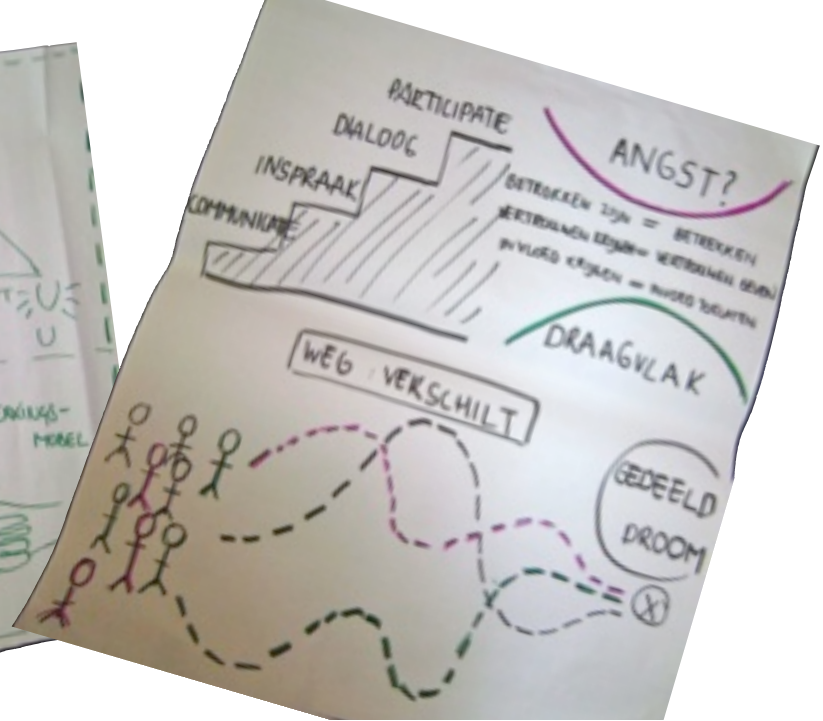 PARTICIPATE
DIALOOG
INSPRAAK
COMMUNICATIE
ANGST?
BETROKKEN ZIJN = BETREKKEN
VERTROUWEN KRIJGEN = VERTROUWEN GEVEN
INVLOED KRIJGEN = INVLOED TOELATEN
DRAAGVLAK
WEG : VERSCHILT
GEDEELD
DROOM
X
MODEL